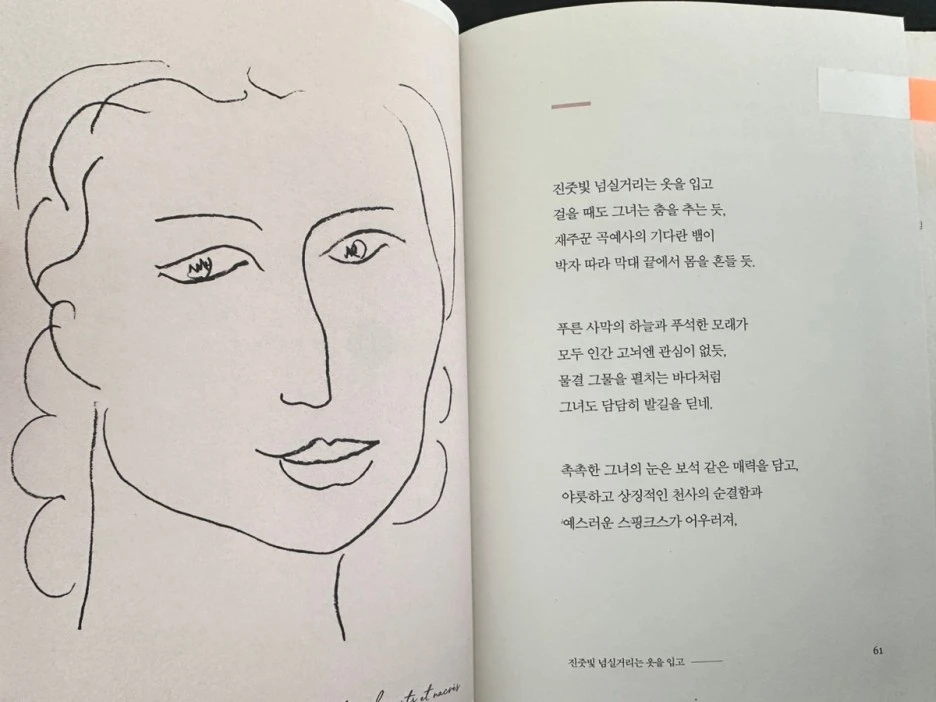 진줏빛 넘실거리는 옷을 입고
걸을 때도 그녀는 춤을 추는 듯,
재주꾼 곡예사의 기다란 뱀이
박자 따라 막대 끝에서 몸을 흔들 듯.
푸른 사막의 하늘과 푸석한 모래가
모두 인간 고뇌엔 관심이 없듯,
물결 그물을 펼치는 바다처럼
그녀도 담담히 발길을 딛네.
촉촉한 그녀의 눈은 보석 같은 매력을 담고,
야릇하고 상징적인 천사의 순결함과
예스러운 스핑크스가 어우러져,
진줏빛 넘실거리는 옷을 입고
61
et nacrés